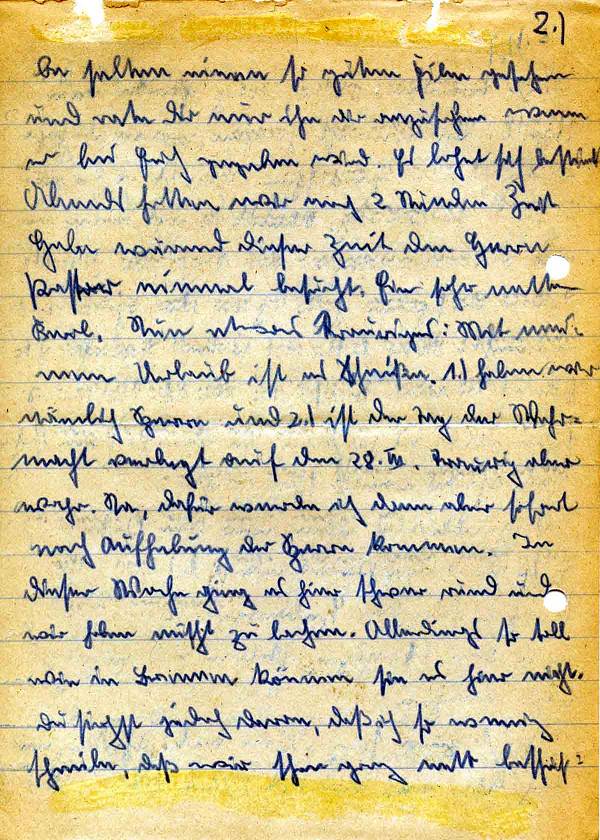 2.)
be selten einen so guten Film gesehen
und rate Dir nur ihn dir anzusehen wenn
er bei Euch gegeben wird. Es lohnt sich bestimmt
Abends hatten wir noch 2 Stunden Zeit
Habe während dieser Zeit den Herrn
Pastor einmal besucht. Ein sehr netter
Kerl. Nun etwas Trauriges: Met mei-
nem Urlaub ist es Scheiße. 1.) haben wir
nämlich Sperre und 2.) ist der Tag der Wehr=
macht verlegt auf den 28. III. Traurig aber
wahr. Na, dafür werde ich dann aber sofort
nach Aufhebung der Sperre kommen. In
dieser Woche ging es hier schwer rund und
wir haben nischt zu lachen. Allerdings so toll
wie in Bremen können sie es hier nicht.
Du siehst jedoch daran, daß ich so wenig
schreibe, daß wir schon ganz nett beschäf=